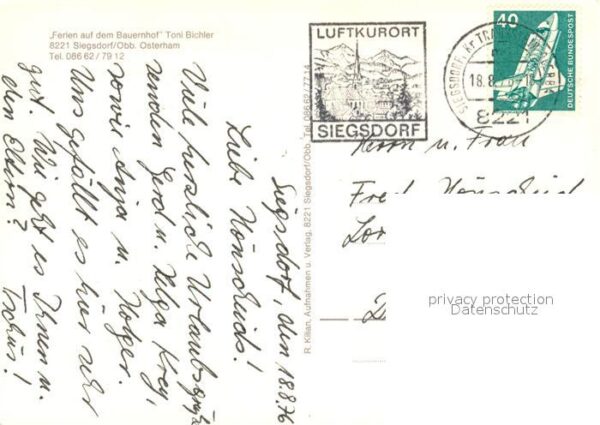 „Ferien auf dem Bauernhof" Toni Bichler
8221 Siegsdorf/Obb. Osterham
Tel. 086 62 / 79 12
LUFTKURORT
SIEGSDORF
SIEGSDORF, Kr TRAUNSTEIN
18.8.
8221
40
DEUTSCHE BUNDESPOST
Siegsdorf, den 18.8.76
Liebe Hönscheids!
Viele herzliche Urlaubsgrüße
senden Gerd u. Helga Krey,
sowie Anja u. Holger.
Uns gefällt es hier sehr
gut. Wie geht es Ihnen u.
den Eltern? Tschüs!
R. Kilian, Aufnahmen u. Verlag, 8221 Siegsdorf/Obb. Tel. 08662/7714
Herrn u. Frau
Fred Hönscheid
privacy protection
Datenschutz